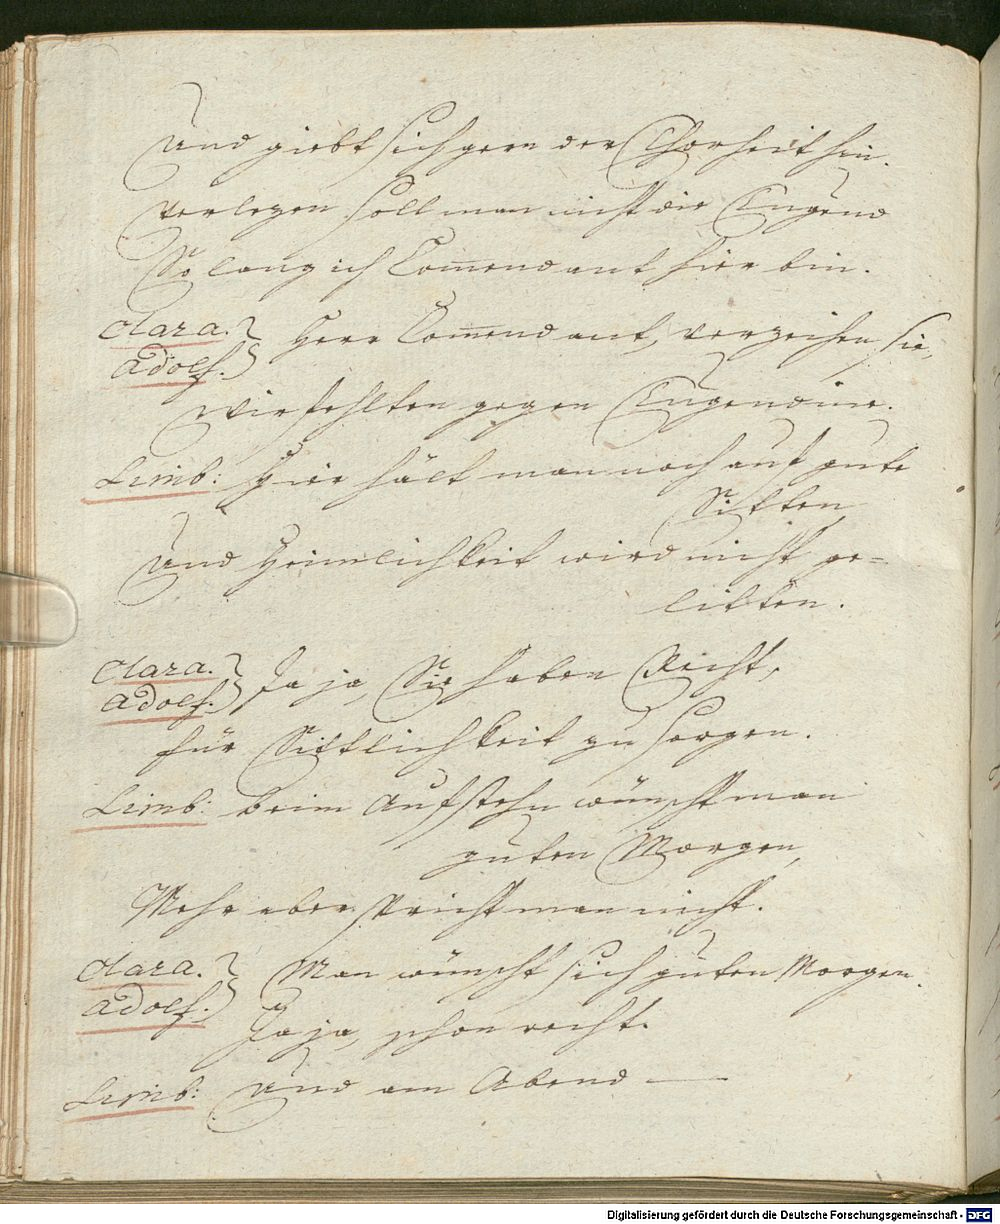 Und giebt sich gern der Thorheit hin.
verlezen soll man nicht die Tugend
So lang ich Com̄endant hier bin.
Clara. Adolf. } Herr Com̄endant, verzeihen sie,
wir fehlten gegen Tugend nie.
Limb: Hier hält man noch auf gute
Sitten
Und Heimlichkeit wird nicht ge-
litten.
Clara. Adolf. } Ja ja, Sie haben Recht,
für Sittlichkeit zu sorgen.
Limb: beim Aufstehn wünscht man
guten Morgen,
Mehr aber spricht man nicht.
Clara. Adolf. } Man wünscht sich guten Morgen.
Ja ja, schon recht.
Limb: Und am Abend —
Digitalisierung gefördert durch die Deutsche Forschungsgemeinschaft - DFG